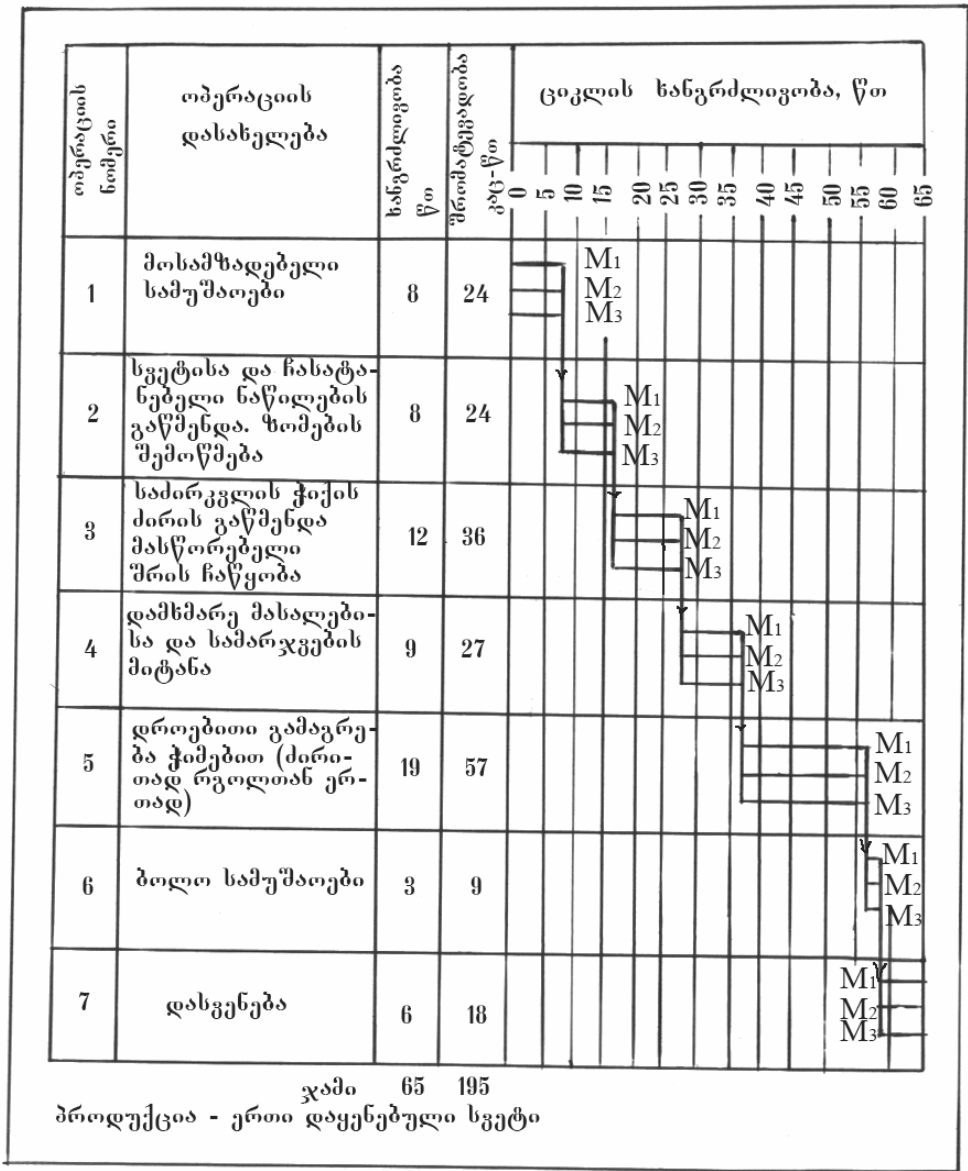 ოპერაციის
ნომერი
ოპერაციის
დასახელება
ხანგრძლივობა
წთ
შრომატევადობა
კაც-წთ
ციკლის ხანგრძლივობა, წთ
0 5 10 15 20 25 30 35 40 45 50 55 60 65
1
მოსამზადებელი
სამუშაოები
8
24
M1
M2
M3
2
სვეტისა და ჩასატა-
ნებელი ნაწილების
გაწმენდა. ზომების
შემოწმება
8
24
M1
M2
M3
3
საძირკვლის ჭიქის
ძირის გაწმენდა
მასწორებელი
შრის ჩაწყობა
12
36
M1
M2
M3
4
დამხმარე მასალები-
სა და სამარჯვების
მიტანა
9
27
M1
M2
M3
5
დროებითი გამაგრე-
ბა ჭიმებით (ძირი-
თად რგოლთან ერ-
თად)
19
57
M1
M2
M3
6
ბოლო სამუშაოები
3
9
M1
M2
M3
7
დასვენება
6
18
M1
M2
M3
ჯამი 65 195
პროდუქცია - ერთი დაყენებული სვეტი